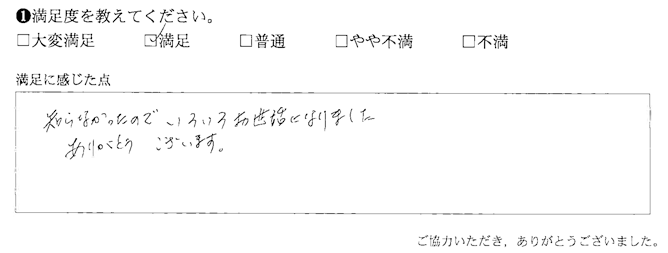 ❶満足度を教えてください。
□大変満足 ☑満足 □普通 □やや不満 □不満
満足に感じた点
知らなかったので いろいろお世話になりました
ありがとう ございます。
ご協力いただき、ありがとうございました。